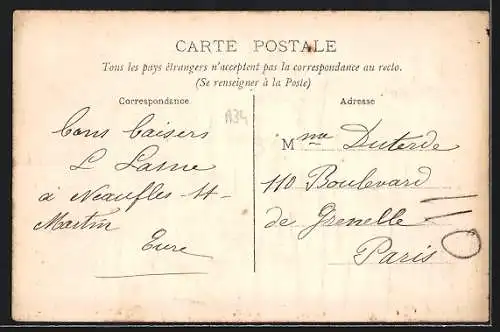 CARTE POSTALE
Tous les pays étrangers n'acceptent pas la correspondance au recto.
(Se renseigner à la Poste)
Correspondance
A34
Bons baisers
L Lasne
à Neaufles-St-
Martin
Eure
Adresse
Mme Duterde
110 Boulevard
de Grenelle
Paris
110